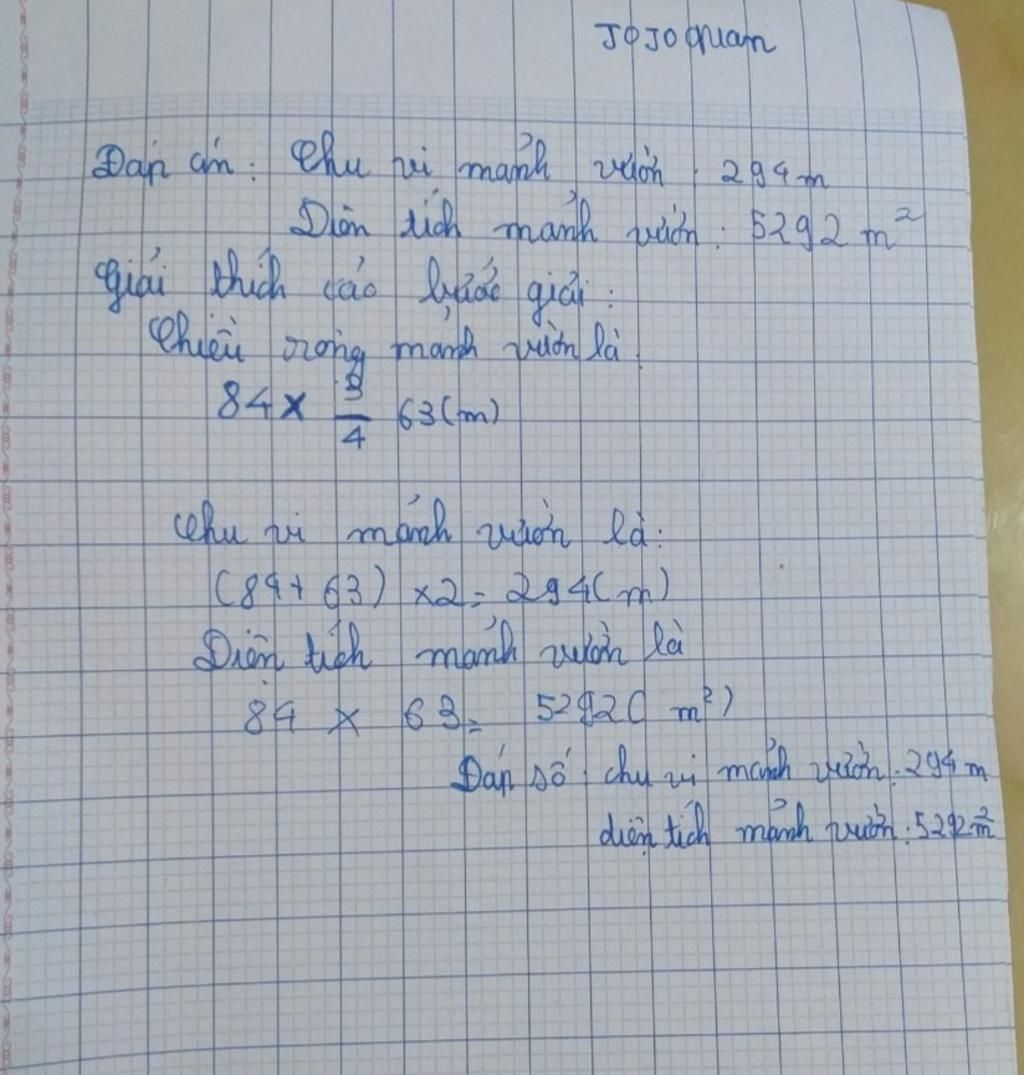 JOJO quan
Đáp án: Chu vi mảnh vườn: 294 m
Diện tích mảnh vườn: 5292 m²
Giải thích các bước giải:
Chiều rộng mảnh vườn là:
84 × 3/4 63 (m)
Chu vi mảnh vườn là:
(84 + 63) × 2 = 294 (m)
Diện tích mảnh vườn là
84 × 63 = 5292 (m²)
Đáp số: chu vi mảnh vườn: 294 m
diện tích mảnh vườn: 5292 m²